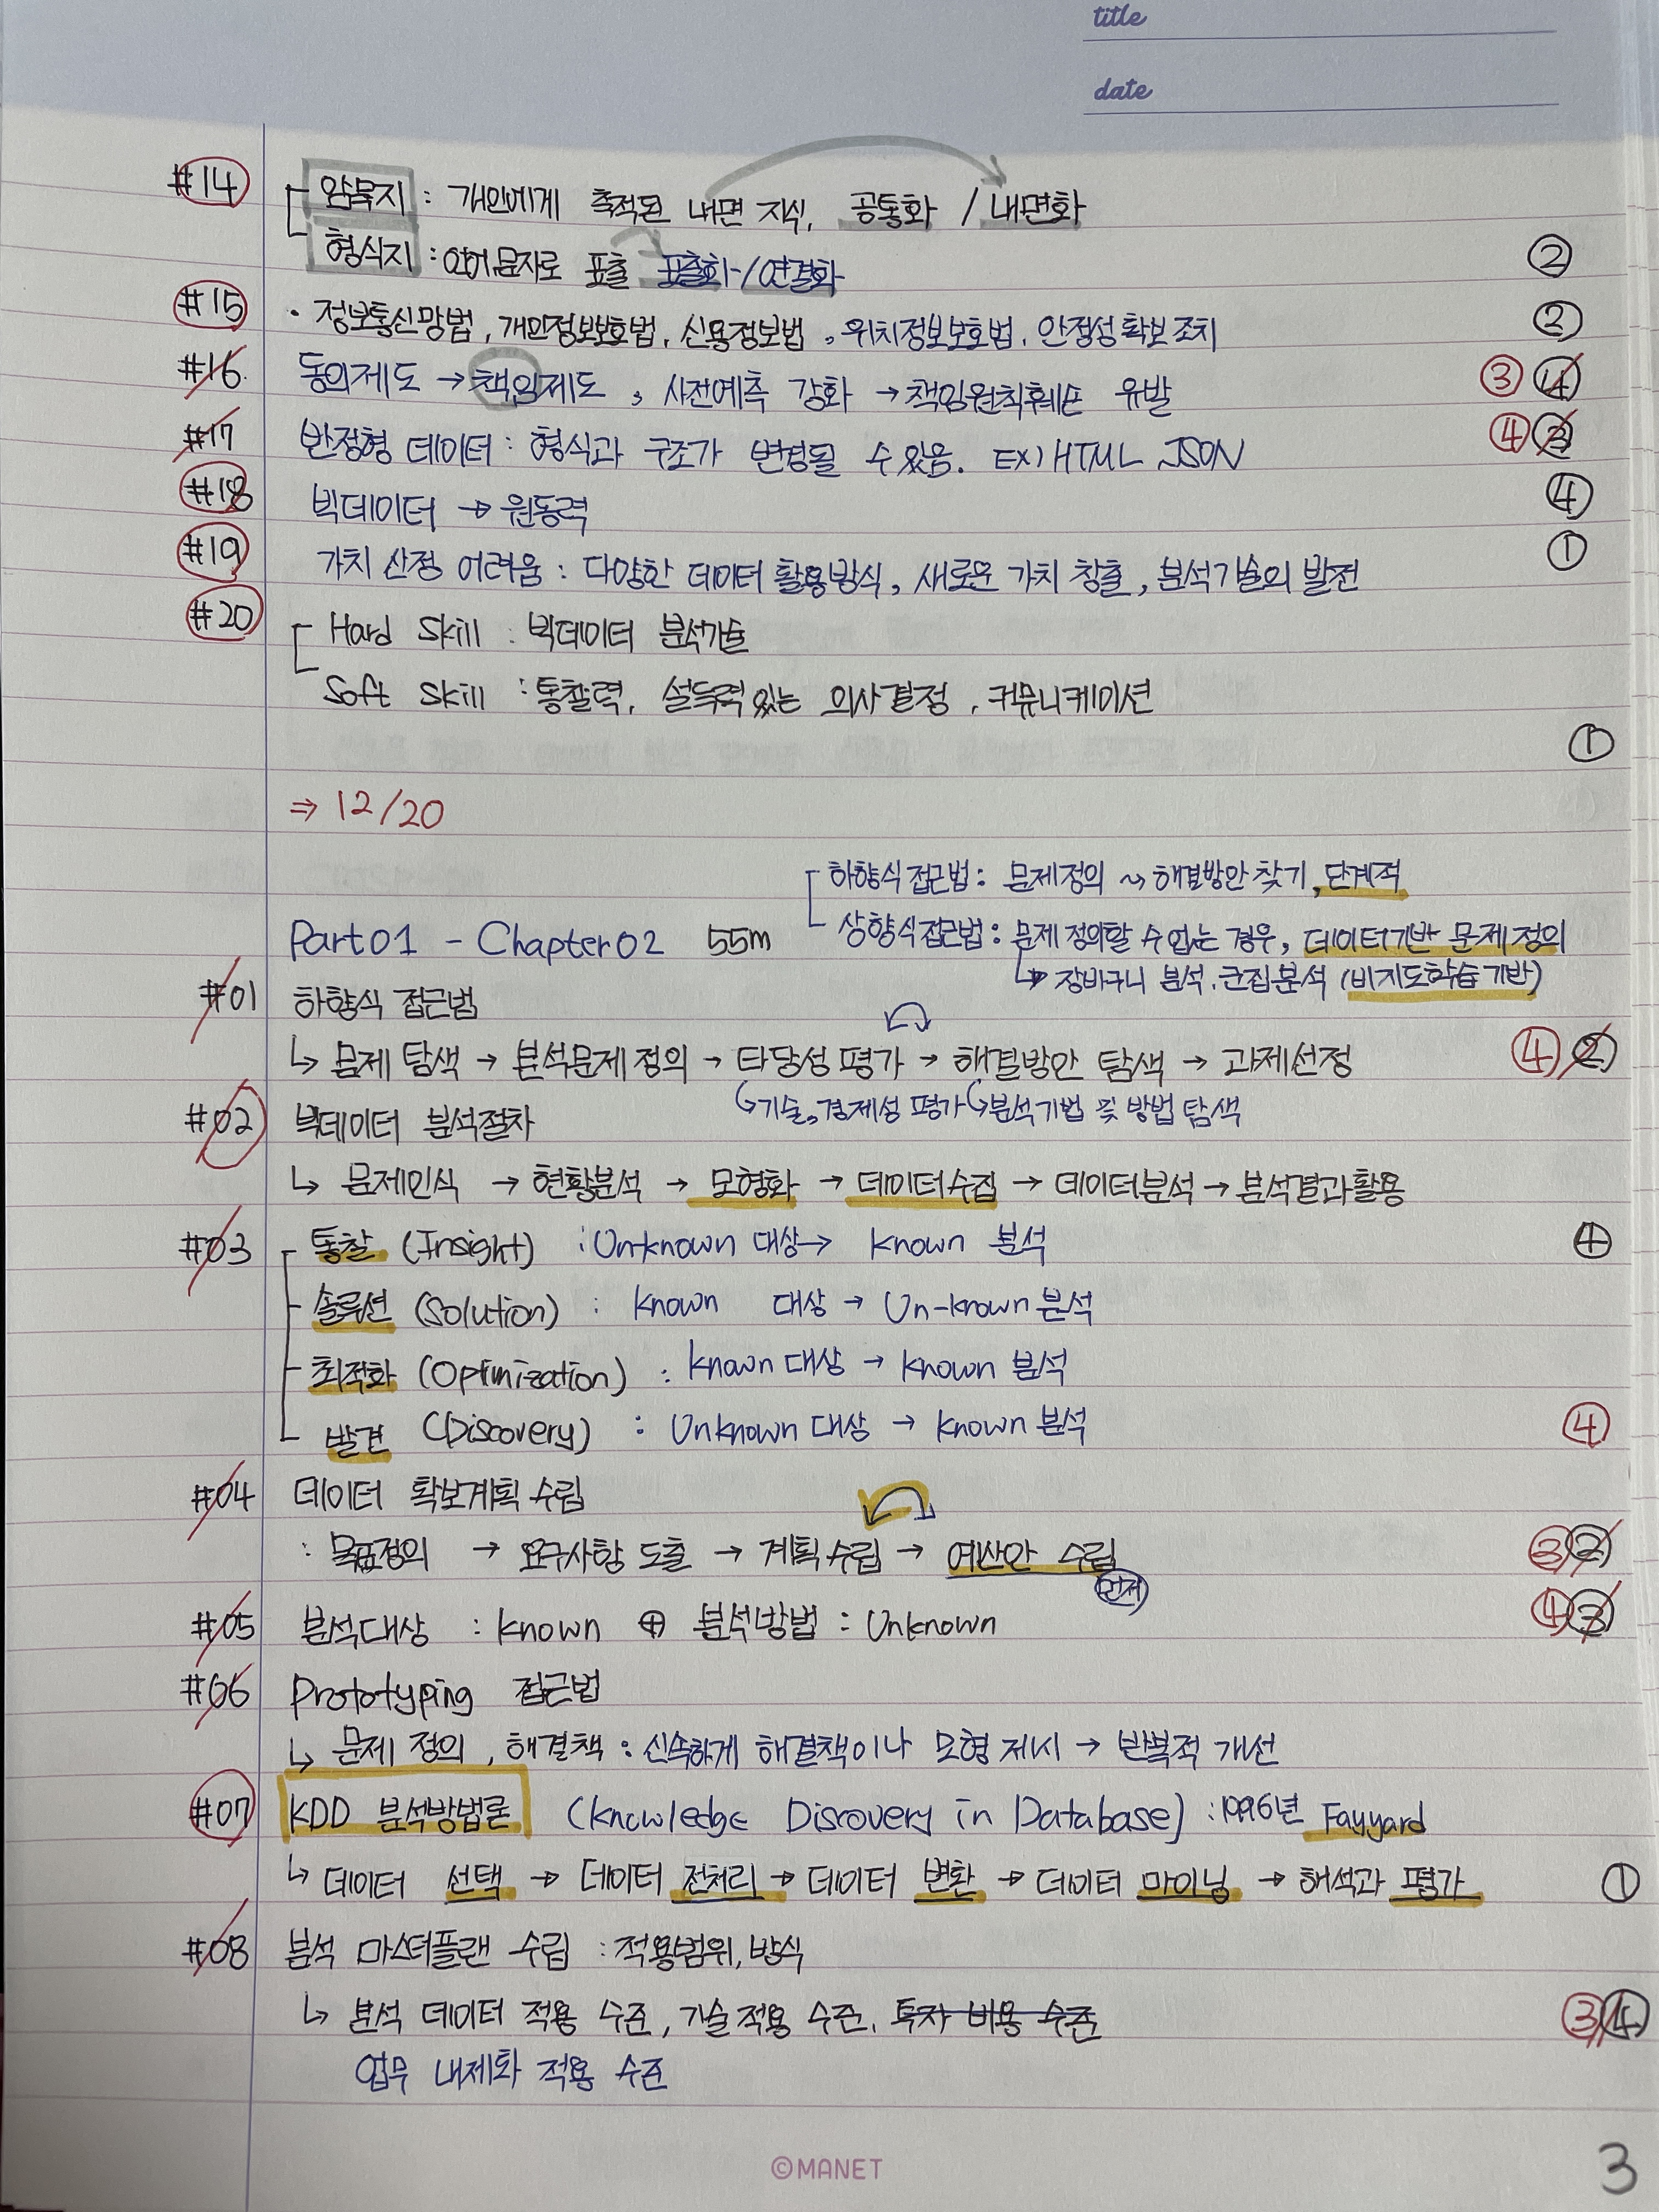 title
date
#14 암묵지 : 개인에게 축적된 내면 지식, 공통화 / 내면화
형식지 : 언어,문자로 표출 표출화 / 연결화 ②
#15 • 정보통신망법, 개인정보보호법, 신용정보법, 위치정보보호법, 안정성확보조치 ②
#16 동의제도 → 책임제도, 사전예측 강화 → 책임원칙훼손 유발 ③ ④
#17 반정형 데이터 : 형식과 구조가 변경될 수 있음. EX) HTML JSON ④ ③
#18 빅데이터 → 원동력 ④
#19 가치 산정 어려움 : 다양한 데이터 활용방식, 새로운 가치 창출, 분석기술의 발전 ①
#20 Hard Skill : 빅데이터 분석기술
Soft Skill : 통찰력, 설득력있는 의사결정, 커뮤니케이션
①
⇒ 12/20
하향식접근법 : 문제정의 ~> 해결방안찾기, 단계적
Part01 - Chapter02 55m 상향식접근법 : 문제정의할 수 없는 경우, 데이터기반 문제정의
↳ 장바구니 분석, 군집분석 (비지도학습기반)
#01 하향식 접근법
↳ 문제 탐색 → 분석문제 정의 → 타당성 평가 → 해결방안 탐색 → 과제선정 ④ ②
↳기술,경제성 평가 ↳분석기법 및 방법 탐색
#02 빅데이터 분석절차
↳ 문제인식 → 현황분석 → 모형화 → 데이터수집 → 데이터분석 → 분석결과활용
#03 통찰 (Insight) : Un-known 대상 → known 분석 ④
솔루션 (Solution) : known 대상 → Un-known 분석
최적화 (Optimization) : known 대상 → known 분석
발견 (Discovery) : Unknown 대상 → known 분석 ④
#04 데이터 확보계획 수립
: 목표정의 → 요구사항 도출 → 계획수립 → 예산안 수립 ③ ②
먼저
#05 분석대상 : known ⊕ 분석방법 : Unknown ④ ③
#06 Prototyping 접근법
↳ 문제 정의, 해결책 : 신속하게 해결책이나 모형 제시 → 반복적 개선
#07 KDD 분석방법론 (Knowledge Discovery in Database) : 1996년 Fayyard
↳ 데이터 선택 → 데이터 전처리 → 데이터 변환 → 데이터 마이닝 → 해석과 평가 ①
#08 분석 마스터플랜 수립 : 적용범위, 방식
↳ 분석 데이터 적용 수준, 기술적용 수준, 투자 비용 수준 ③ ④
업무 내제화 적용 수준
©MANET
3